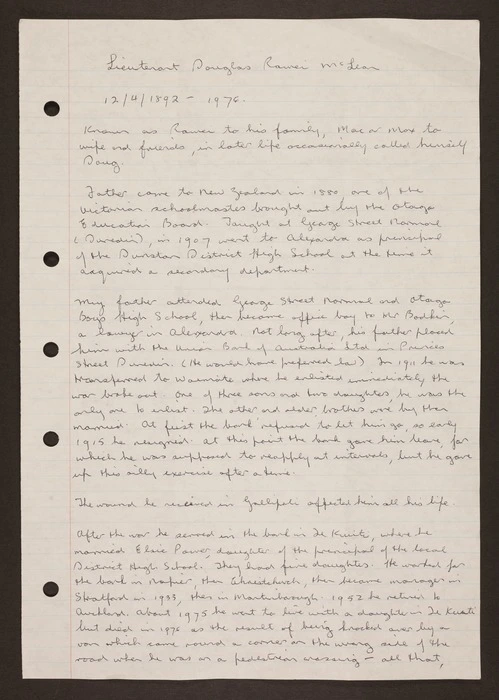 Lieutenant Douglas Ramer McLean
12/4/1892 - 1976.
Known as Ramer to his family, Mac or Max to
wife and friends, in later life occasionally called himself
Doug.
Father came to New Zealand in 1880, one of the
Victorian schoolmasters brought out by the Otago
Education Board. Taught at George Street Normal
(Dunedin), in 1907 went to Alexandra as principal
of the Dunstan District High School at the time it
acquired a secondary department.
My father attended George Street Normal and Otago
Boys High School, then became office boy to Mr Bodkin,
a lawyer in Alexandra. Not long after, his father placed
him with the Union Bank of Australia Ltd in Princes
Street Dunedin. (He would have preferred law) In 1911 he was
transferred to Waimate where he enlisted immediately the
war broke out. One of three sons and two daughters, he was the
only one to enlist. The other and older brothers were by then
married. At first the bank refused to let him go, so early
1915 he resigned. At this point the bank gave him leave, for
which he was supposed to reapply at intervals, but he gave
up this silly exercise after a time.
The wound he received in Gallipoli affected him all his life.
After the war he served in the bank in Te Kuiti, where he
married Elsie Power, daughter of the principal of the local
District High School. They had five daughters. He worked for
the bank in Napier, then Christchurch, then became manager in
Stratford in 1933, then in Martinborough. 1952 he retired to
Auckland. About 1975 he went to live with a daughter in Te Kuiti
but died in 1976 as the result of being knocked over by a
van which came round a corner on the wrong side of the
road when he was on a pedestrian crossing - all that,